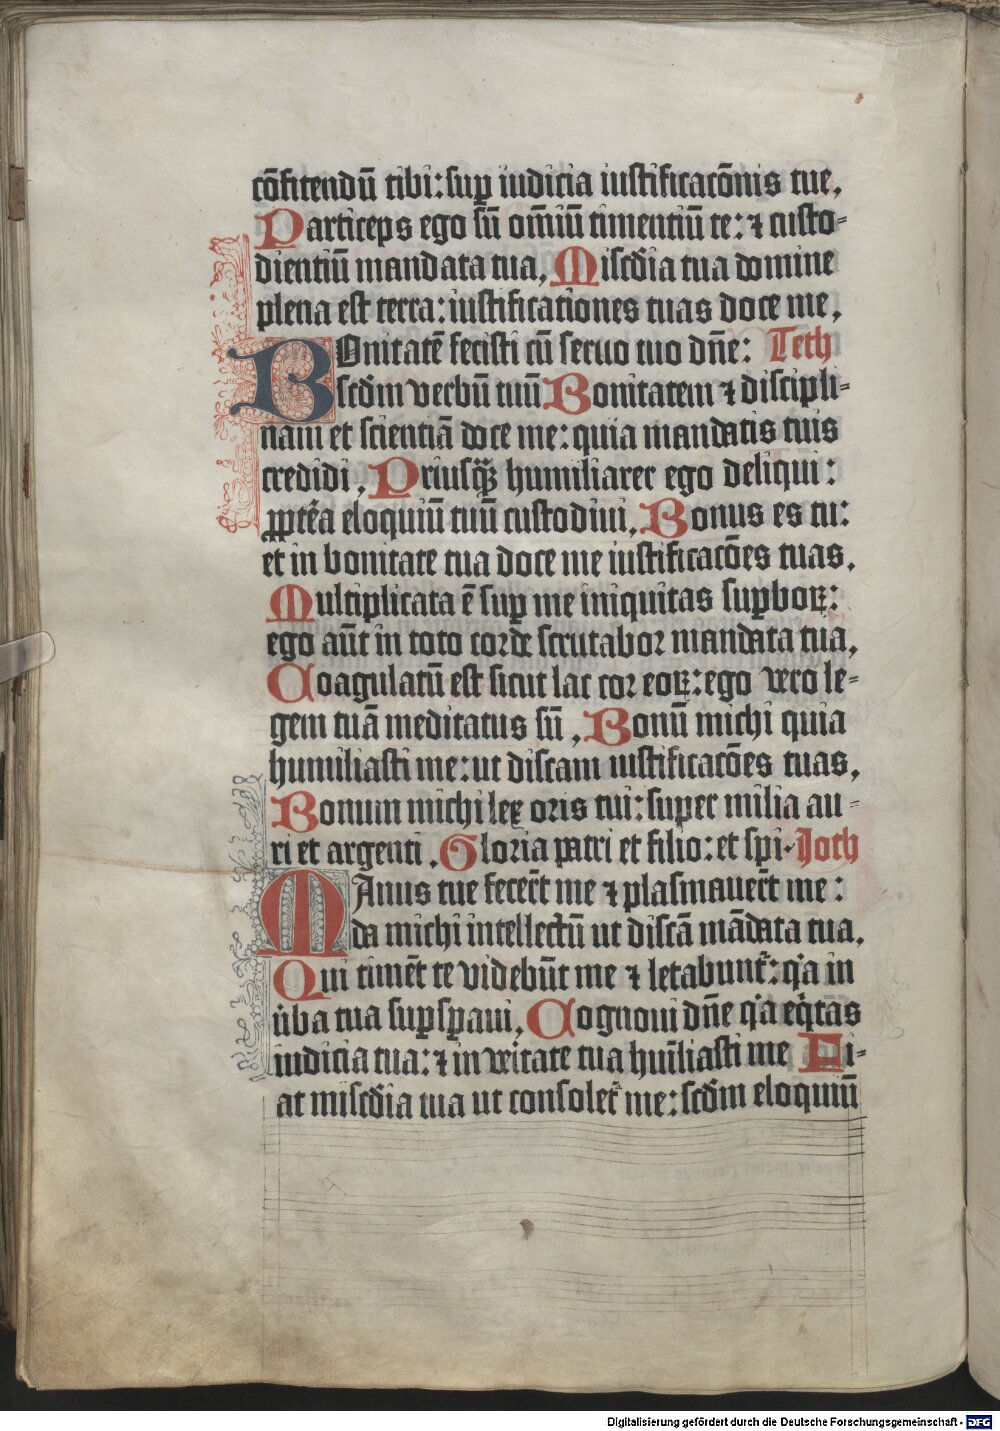 cōfitendū tibi: sup̱ iudicia iustificacōnis tue.
Particeps ego sū om̄iū timentiū te: ⁊ custo-
dientiū mandata tua. Misc̄dia tua domine
plena est terra: iustificationes tuas doce me.
BOnitatē fecisti cū seruo tuo dn̄e: Teth
scd̄m verbū tuū Bonitatem ⁊ discipli-
nam et scientiā doce me: quia mandatis tuis
credidi. Priusq̄ȝ humiliarer ego deliqui:
ꝓpt̄ea eloquiū tuū custodiui. Bonus es tu:
et in bonitate tua doce me iustificacōes tuas.
Multiplicata ē suꝑ me iniquitas suꝑboꝝ:
ego aūt in toto corde scrutabor mandata tua.
Coagulatū est sicut lac cor eoꝝ: ego vero le-
gem tuā meditatus sū. Bonū michi quia
humiliasti me: ut discam iustificacōes tuas.
Bonum michi lex oris tui: super milia au-
ri et argenti. Gloria patri et filio: et spi- Joth
MAnus tue fecer̄t me ⁊ plasmauer̄t me:
da michi intellectū ut discā mādata tua.
Qui timēt te videbūt me ⁊ letabunt᷑: qͥa in
ūba tua suꝑsꝑaui. Cognoui dn̄e qͥa eq̇tās
iudicia tua: ⁊ in veͥtate tua huīliasti me Fi-
at misc̄dia tua ut consolet᷑ me: scd̄m eloquiū
Digitalisierung gefördert durch die Deutsche Forschungsgemeinschaft - DFG